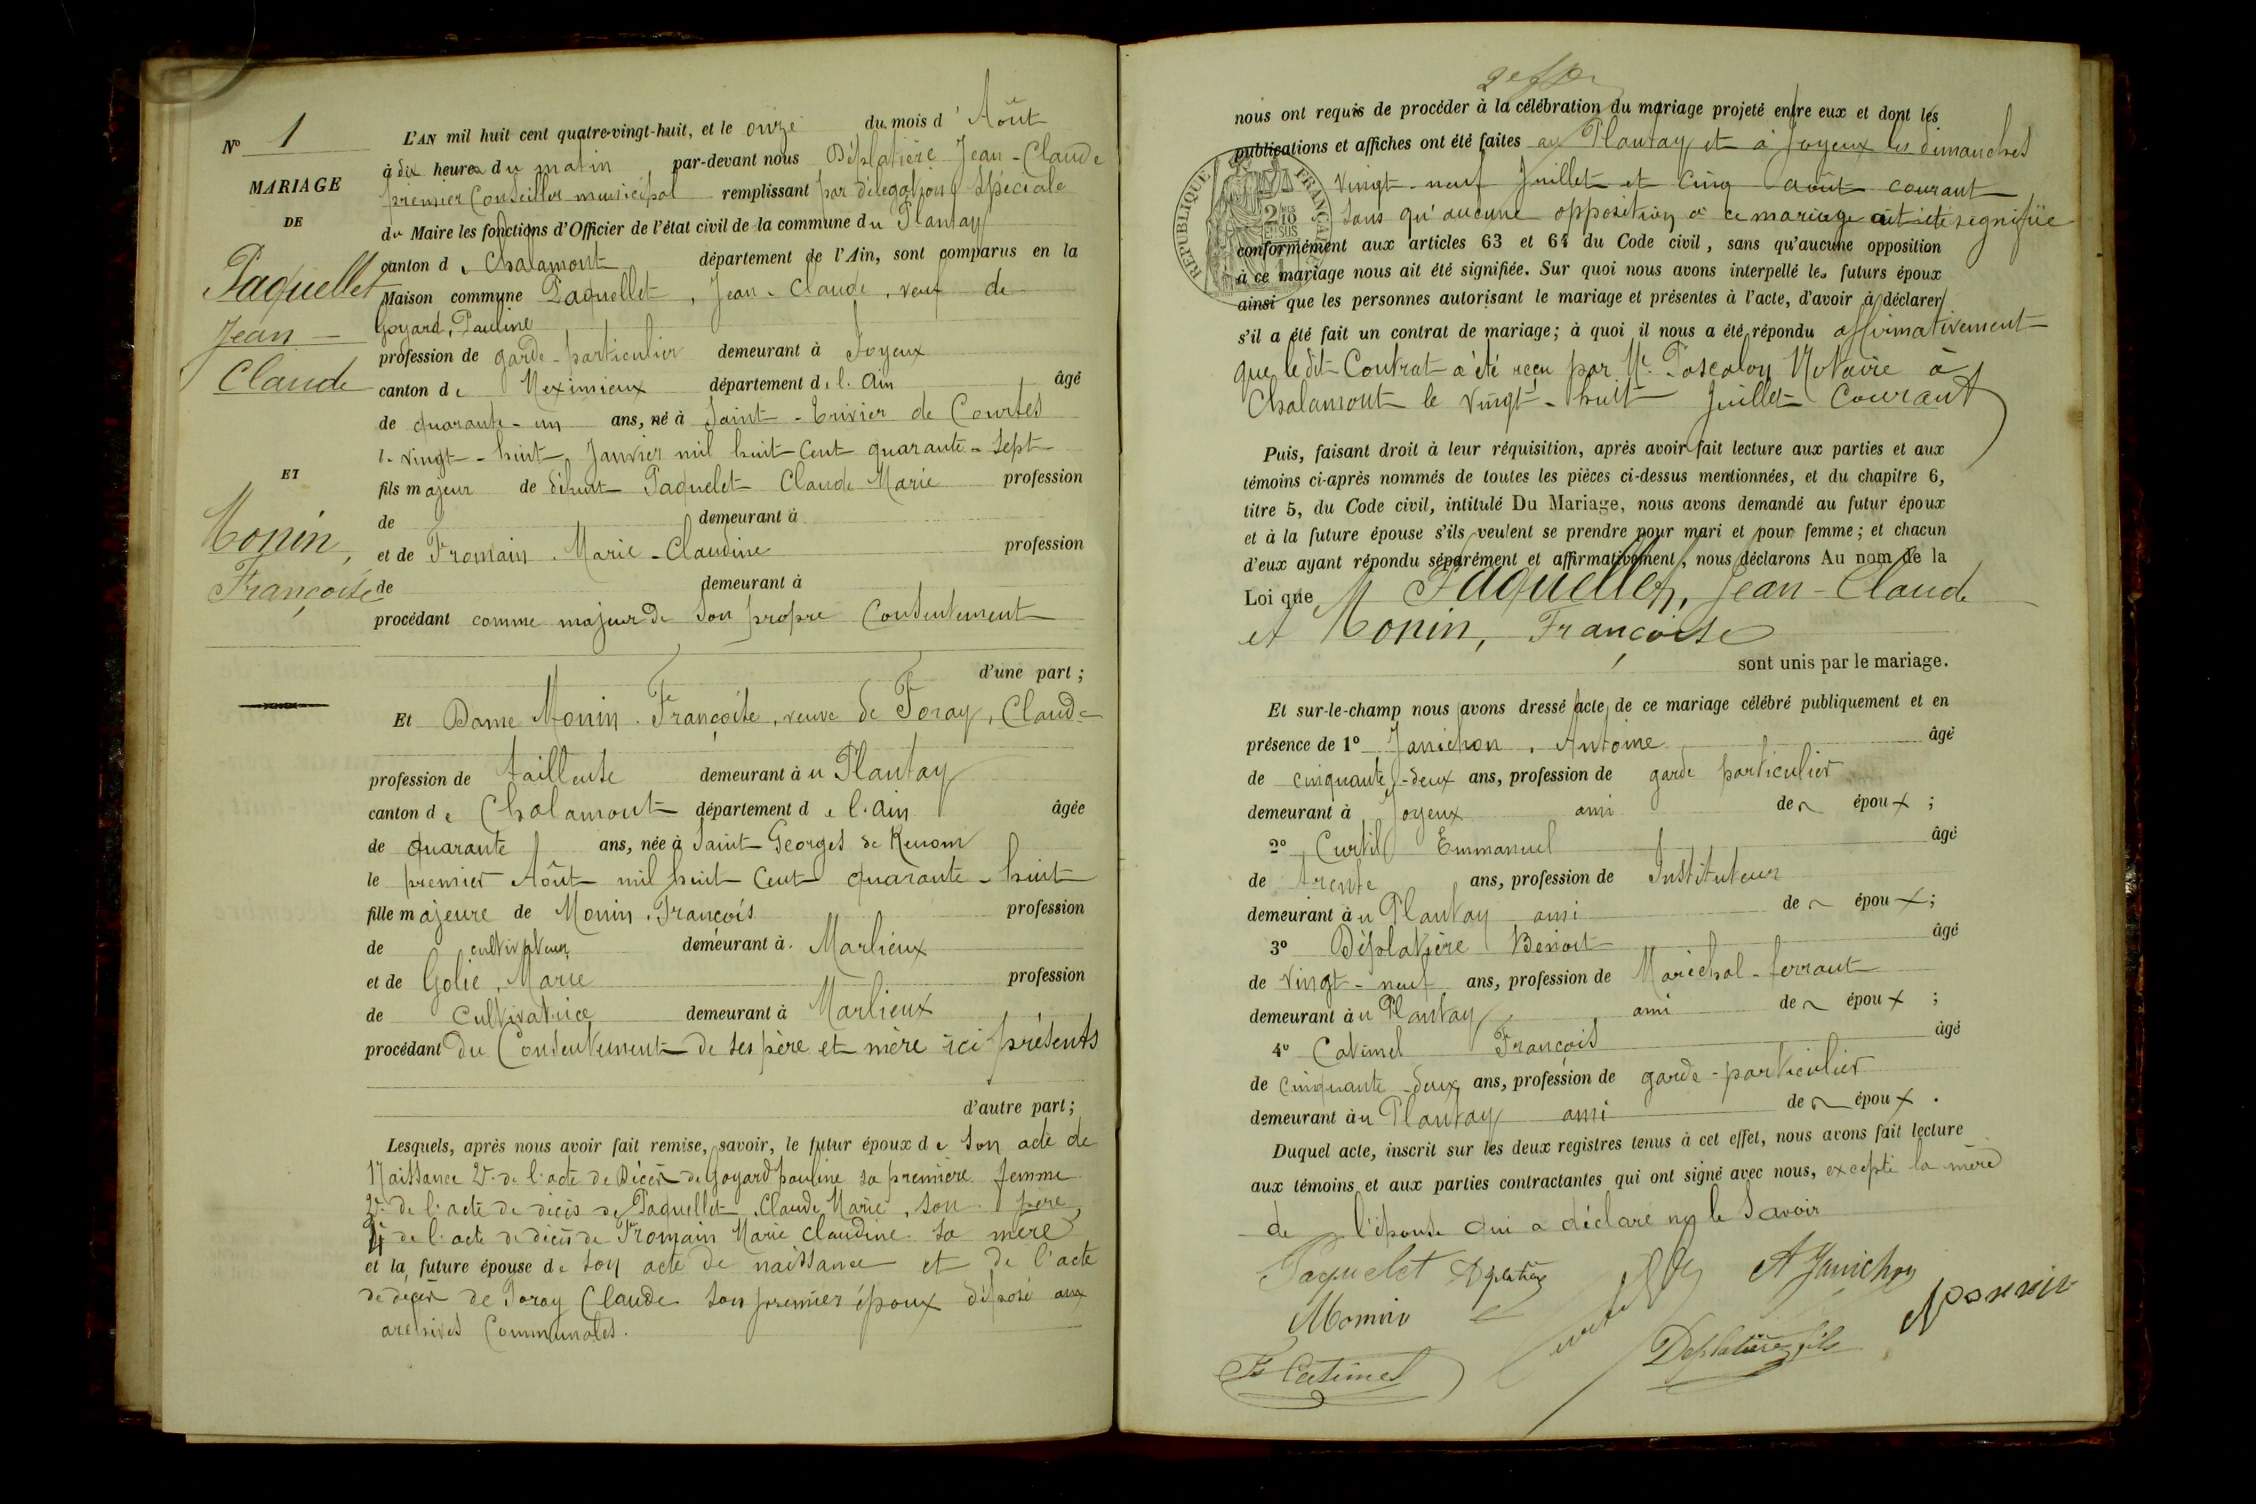 N° 1
MARIAGE
DE
Paquellet
Jean
Claude
ET
Monin,
Françoise
L'AN mil huit cent quatre-vingt-huit, et le onze du mois d'Août
à dix heures du matin par-devant nous Déplatière Jean-Claude
premier Conseiller municipal remplissant par délégation spéciale
du Maire les fonctions d'Officier de l'état civil de la commune du Plantay
canton de Chalamont département de l'Ain, sont comparus en la
Maison commune Paquellet, Jean-Claude, veuf de
Goyard, Pauline
profession de garde-particulier demeurant à Joyeux
canton de Meximieux département de l'Ain âgé
de quarante-un ans, né à Saint-Trivier de Courtes
le vingt-huit Janvier mil huit Cent quarante-sept
fils majeur de défunt Paquelet Claude Marie profession
de demeurant à
et de Fromain Marie-Claudine profession
de demeurant à
procédant comme majeur de son propre Consentement
d'une part;
Et Dame Monin Françoise, veuve de Foray, Claude
profession de tailleuse demeurant au Plantay
canton de Chalamont département de l'Ain âgée
de quarante ans, née à Saint Georges de Renom
le premier Août mil huit Cent quarante-huit
fille majeure de Monin, François profession
de cultivateur demeurant à Marlieux
et de Golie, Marie profession
de Cultivatrice demeurant à Marlieux
procédant du Consentement de ses père et mère ici présents
d'autre part;
Lesquels, après nous avoir fait remise, savoir, le futur époux de son acte de
Naissance 2° de l'acte de Décès de Goyard pauline sa première femme
de l'acte de décès de Paquellet, Claude Marie, son père
4° de l'acte de décès de Fromain Marie Claudine sa mère
et la future épouse de son acte de naissance et de l'acte
de décès de Foray Claude son premier époux déposé aux
archives Communales.
nous ont requis de procéder à la célébration du mariage projeté entre eux et dont les
publications et affiches ont été faites au Plantay et à Joyeux les dimanches
vingt-neuf Juillet et cinq août courant
sans qu'aucune opposition à ce mariage ait été signifiée
RÉPUBLIQUE FRANÇAISE
conformément aux articles 63 et 64 du Code civil, sans qu'aucune opposition
à ce mariage nous ait été signifiée. Sur quoi nous avons interpellé les futurs époux
ainsi que les personnes autorisant le mariage et présentes à l'acte, d'avoir à déclarer
s'il a été fait un contrat de mariage; à quoi il nous a été répondu affirmativement
que le dit Contrat a été reçu par Me Pascalon Notaire à
Chalamont le vingt-huit Juillet Courant
Puis, faisant droit à leur réquisition, après avoir fait lecture aux parties et aux
témoins ci-après nommés de toutes les pièces ci-dessus mentionnées, et du chapitre 6,
titre 5, du Code civil, intitulé Du Mariage, nous avons demandé au futur époux
et à la future épouse s'ils veulent se prendre pour mari et pour femme; et chacun
d'eux ayant répondu séparément et affirmativement, nous déclarons Au nom de la
Loi que M Paquellet, Jean-Claude
et Monin, Françoise
sont unis par le mariage.
Et sur-le-champ nous avons dressé acte de ce mariage célébré publiquement et en
présence de 1° Janichon, Antoine âgé
de cinquante-deux ans, profession de garde particulier
demeurant à Joyeux ami de époux;
2° Curtil Emmanuel âgé
de trente ans, profession de Instituteur
demeurant au Plantay ami de époux;
3° Déplatière Benoit âgé
de vingt-neuf ans, profession de Maréchal-ferrant
demeurant au Plantay ami de époux;
4° Catimel François âgé
de cinquante-deux ans, profession de garde-particulier
demeurant au Plantay ami de époux.
Duquel acte, inscrit sur les deux registres tenus à cet effet, nous avons fait lecture
aux témoins et aux parties contractantes qui ont signé avec nous, excepté la mère
de l'épouse qui a déclaré ne le savoir
Paquelet Déplatière A Janichon
Monin
Fs Catimel Deplatière fils